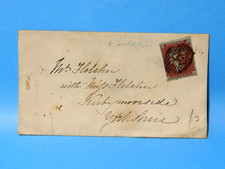 Mrs Fletcher
with Miss Fletcher
Kirbymoorside
Yorkshire